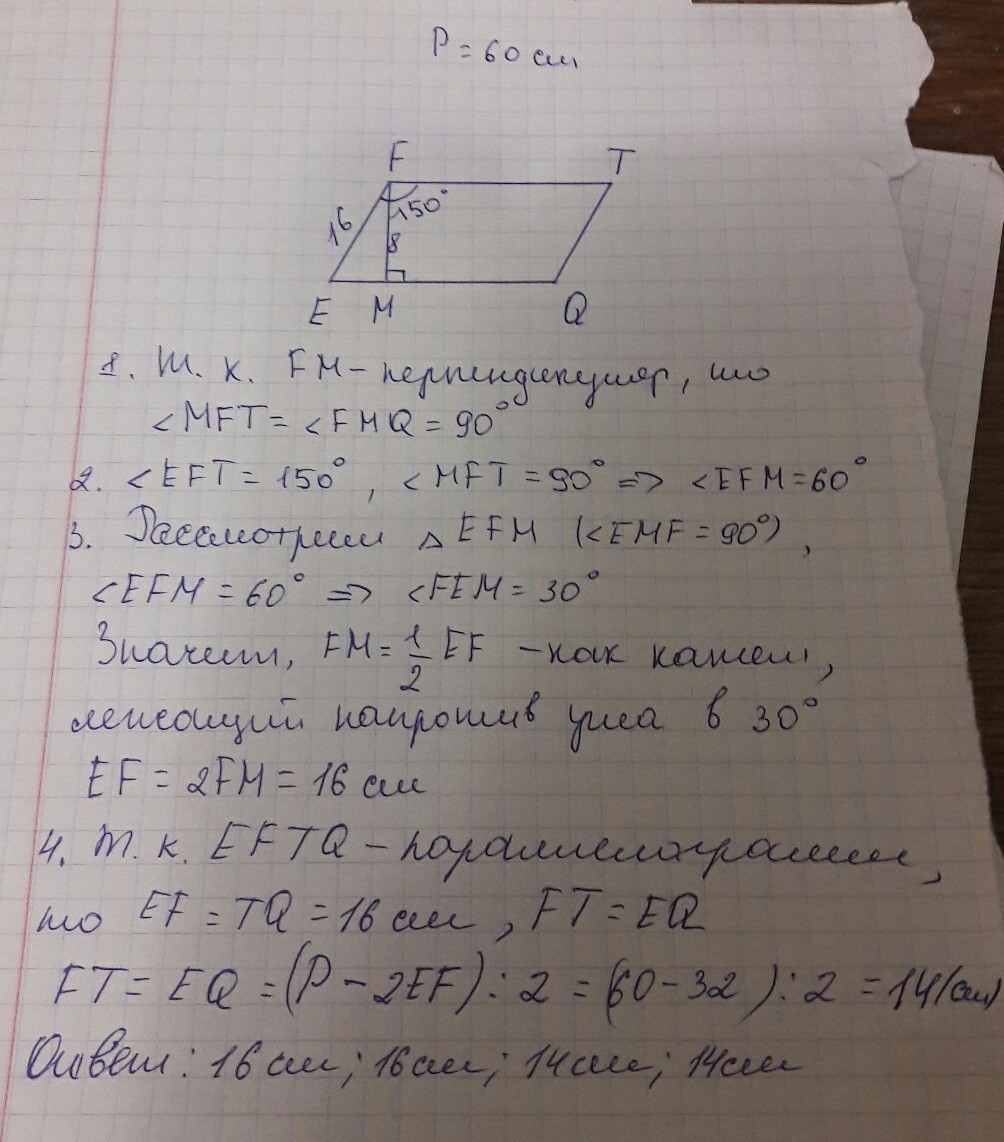 P = 60 см
F T
150°
16
8
E M Q
1. Т. к. FM - перпендикуляр, то
<MFT = <FMQ = 90°
2. <EFT = 150°, <MFT = 90° => <EFM = 60°
3. Рассмотрим △ EFM (<EMF = 90°),
<EFM = 60° => <FEM = 30°
Значит, FM = 1/2 EF - как катет,
лежащий напротив угла в 30°
EF = 2FM = 16 см
4. Т. к. EFTQ - параллелограмм,
то EF = TQ = 16 см, FT = EQ
FT = EQ = (P - 2EF) : 2 = (60 - 32) : 2 = 14 (см)
Ответ: 16 см; 16 см; 14 см; 14 см